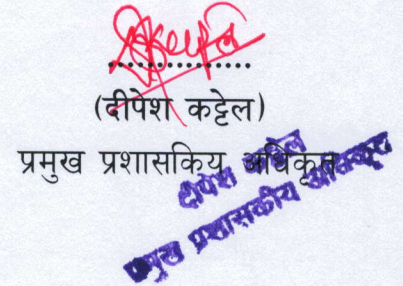 (दीपेश कट्टेल)
प्रमुख प्रशासकिय अधिकृत
दीपेश कट्टेल
प्रमुख प्रशासकीय अधिकृत